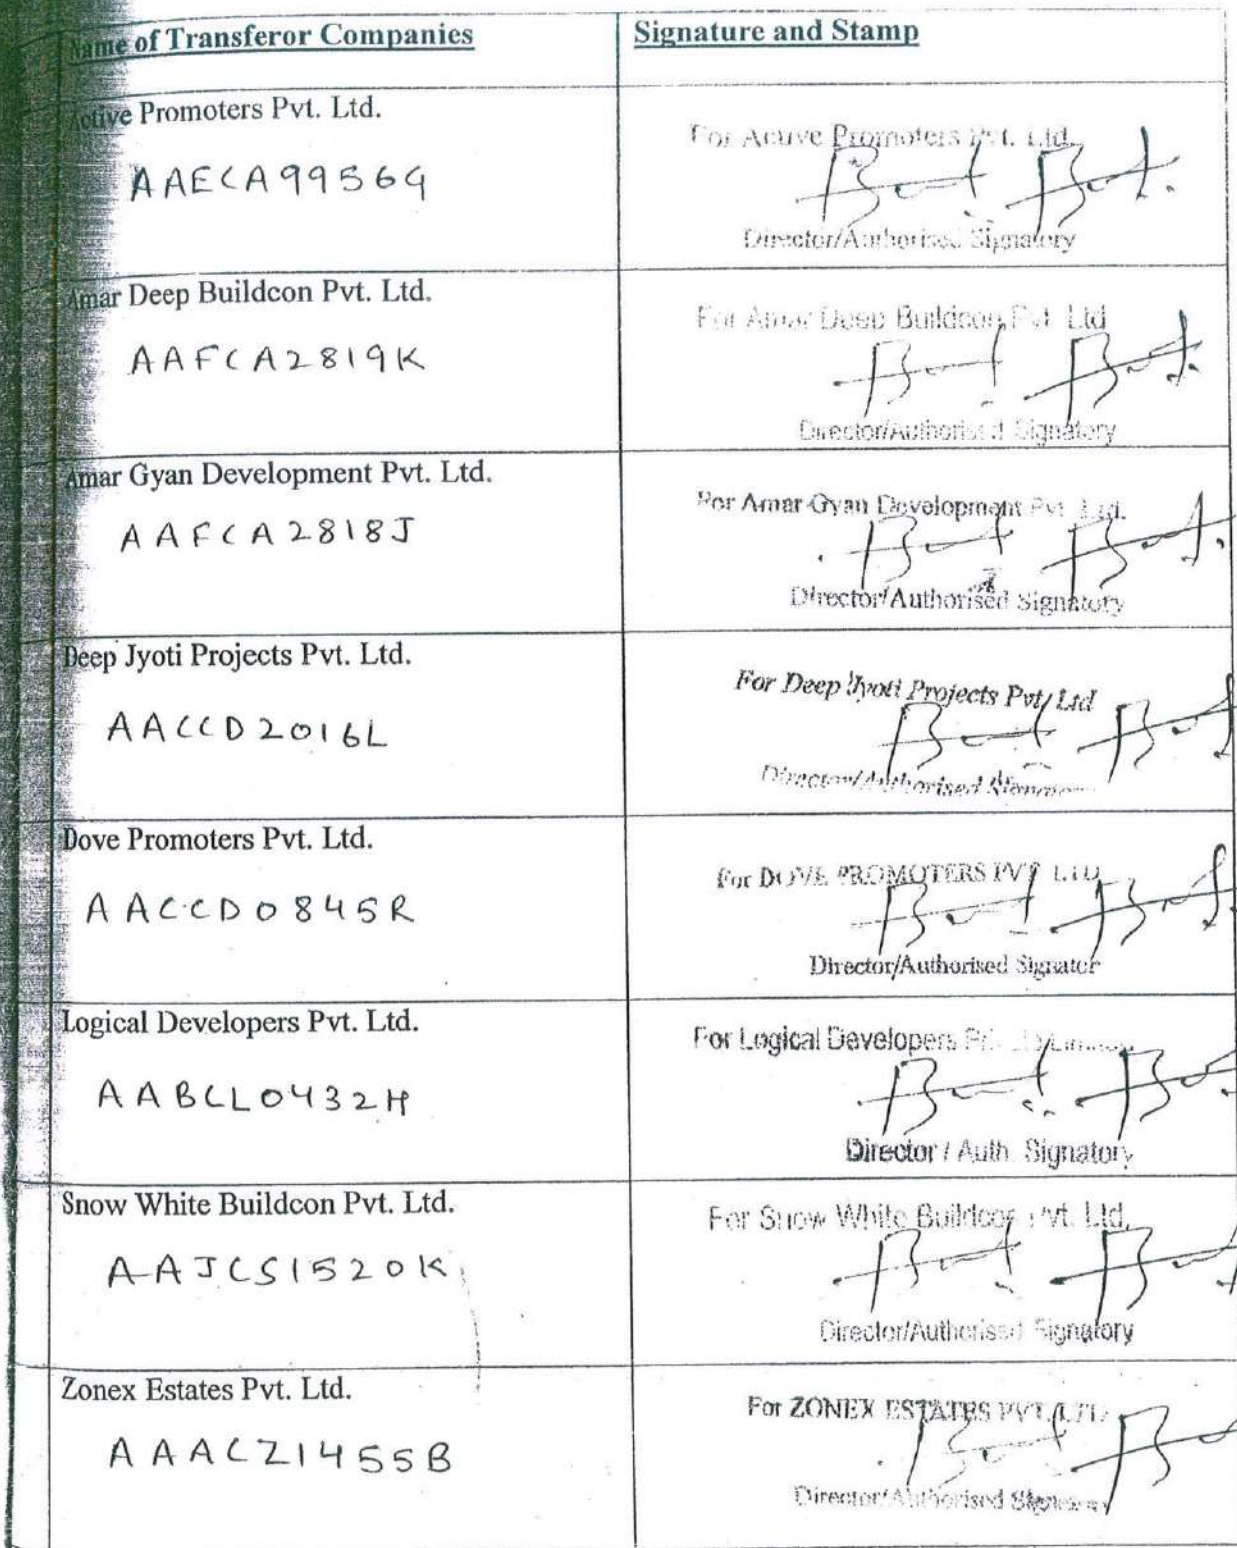 Name of Transferor Companies
Signature and Stamp
Active Promoters Pvt. Ltd.
AAECA9956G
For Active Promoters Pvt. Ltd.
Director/Authorised Signatory
Amar Deep Buildcon Pvt. Ltd.
AAFCA2819K
For Amar Deep Buildcon Pvt. Ltd
Director/Authorised Signatory
Amar Gyan Development Pvt. Ltd.
AAFCA2818J
For Amar Gyan Development Pvt. Ltd.
Director/Authorised Signatory
Deep Jyoti Projects Pvt. Ltd.
AACCD2016L
For Deep Jyoti Projects Pvt. Ltd
Director/Authorised
Dove Promoters Pvt. Ltd.
AACCD0845R
For DOVE PROMOTERS PVT LTD
Director/Authorised Signator
Logical Developers Pvt. Ltd.
AABCL0432H
For Logical Developers
Director / Auth. Signatory
Snow White Buildcon Pvt. Ltd.
AAJCS1520K
For Snow White Buildcon Pvt. Ltd.
Director/Authorised Signatory
Zonex Estates Pvt. Ltd.
AAACZ1455B
For ZONEX ESTATES PVT. LTD
Director/Authorised